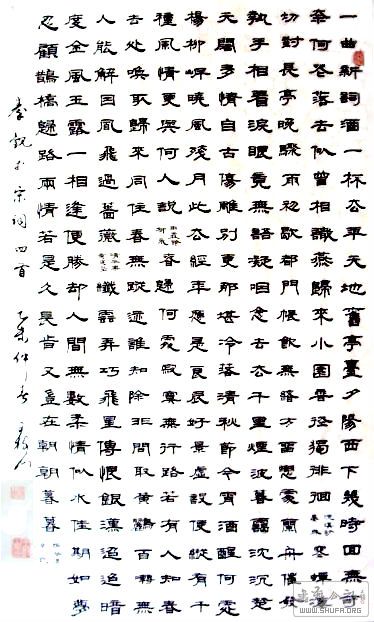 一曲新詞酒一杯去年天氣舊亭臺夕陽西下幾時回無可
奈何花落去似曾相識燕歸來小園香徑獨徘徊 浣溪沙 晏殊 寒蟬淒
切對長亭晚驟雨初歇都門帳飲無緒方留戀處蘭舟催發
執手相看淚眼竟無語凝咽念去去千里煙波暮靄沉沉楚
天闊多情自古傷離別更那堪冷落清秋節今宵酒醒何處
楊柳岸曉風殘月此去經年應是良辰好景虛設便縱有千
種風情更與何人說 雨霖鈴 柳永 春歸何處寂寞無行路若有人知春
去處喚取歸來同住春無蹤跡誰知除非問取黃鸝百囀無
人能解因風飛過薔薇 清平樂 黃庭堅 纖雲弄巧飛星傳恨銀漢迢迢暗
度金風玉露一相逢便勝卻人間無數柔情似水佳期如夢
忍顧鵲橋歸路兩情若是久長時又豈在朝朝暮暮
宋詞四首 乙未仲春
WWW.SHUFA.ORG